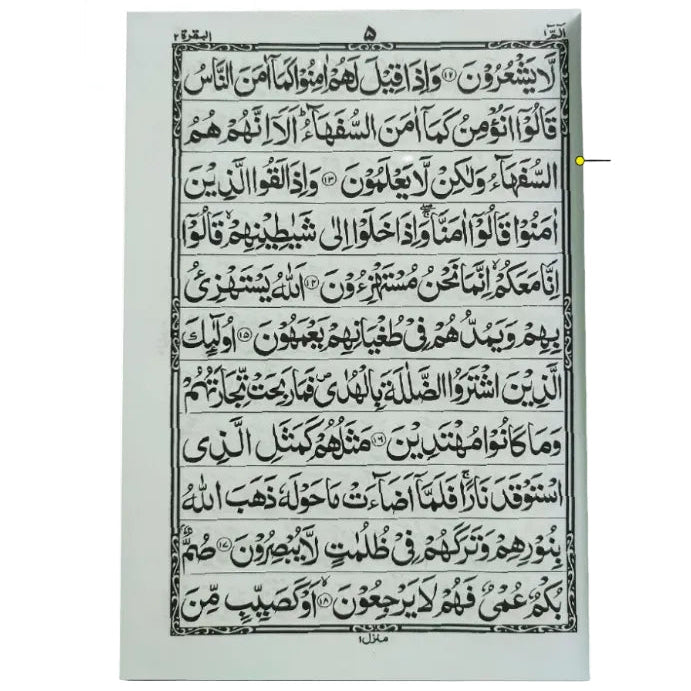 الٓمّٓ ١ ۵ البقرة ٢
لَّا يَشْعُرُوْنَ ﴿۱۲﴾ وَاِذَا قِيْلَ لَهُمْ اٰمِنُوْا كَمَاۤ اٰمَنَ النَّاسُ
قَالُوْۤا اَنُؤْمِنُ كَمَاۤ اٰمَنَ السُّفَهَآءُ ؕ اَلَاۤ اِنَّهُمْ هُمُ
السُّفَهَآءُ وَلٰكِنْ لَّا يَعْلَمُوْنَ ﴿۱۳﴾ وَاِذَا لَقُوا الَّذِيْنَ
اٰمَنُوْا قَالُوْۤا اٰمَنَّا ۚۖ وَاِذَا خَلَوْا اِلٰى شَيٰطِيْنِهِمْ ۙ قَالُوْۤا
اِنَّا مَعَكُمْ ۙ اِنَّمَا نَحْنُ مُسْتَهْزِءُوْنَ ﴿۱۴﴾ اَللّٰهُ يَسْتَهْزِئُ
بِهِمْ وَيَمُدُّهُمْ فِيْ طُغْيَانِهِمْ يَعْمَهُوْنَ ﴿۱۵﴾ اُولٰٓئِكَ
الَّذِيْنَ اشْتَرَوُا الضَّلٰلَةَ بِالْهُدٰى ۪ فَمَا رَبِحَتْ تِّجَارَتُهُمْ
وَمَا كَانُوْا مُهْتَدِيْنَ ﴿۱۶﴾ مَثَلُهُمْ كَمَثَلِ الَّذِى
اسْتَوْقَدَ نَارًا ۚ فَلَمَّاۤ اَضَآءَتْ مَا حَوْلَهٗ ذَهَبَ اللّٰهُ
بِنُوْرِهِمْ وَتَرَكَهُمْ فِيْ ظُلُمٰتٍ لَّا يُبْصِرُوْنَ ﴿۱۷﴾ صُمٌّۢ
بُكْمٌ عُمْيٌ فَهُمْ لَا يَرْجِعُوْنَ ﴿۱۸﴾ ۙ اَوْ كَصَيِّبٍ مِّنَ
منزل ١